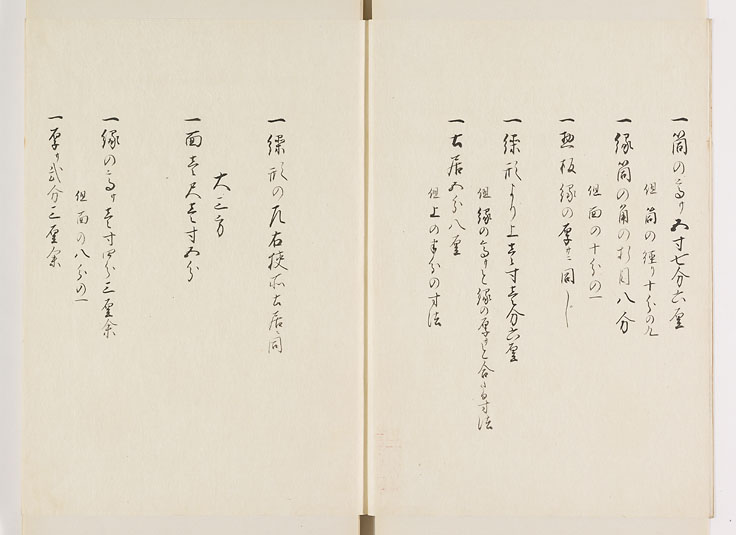 一筒の高サ五寸七分六厘
但筒の径り十分の九
一縁筒の角の折目八分
但面の十分の一
一惣板縁の厚サニ同し
一繰形より上壱寸壱分六厘
但縁の高サと縁の厚サと合たる寸法
一土居五分八厘
但上の半分の寸法
一繰形の尻右挟所土居ニ同
大三方
一面壱尺壱寸五分
一縁の高サ壱寸四分三厘余
但面の八分の一
一厚サ弐分三厘余